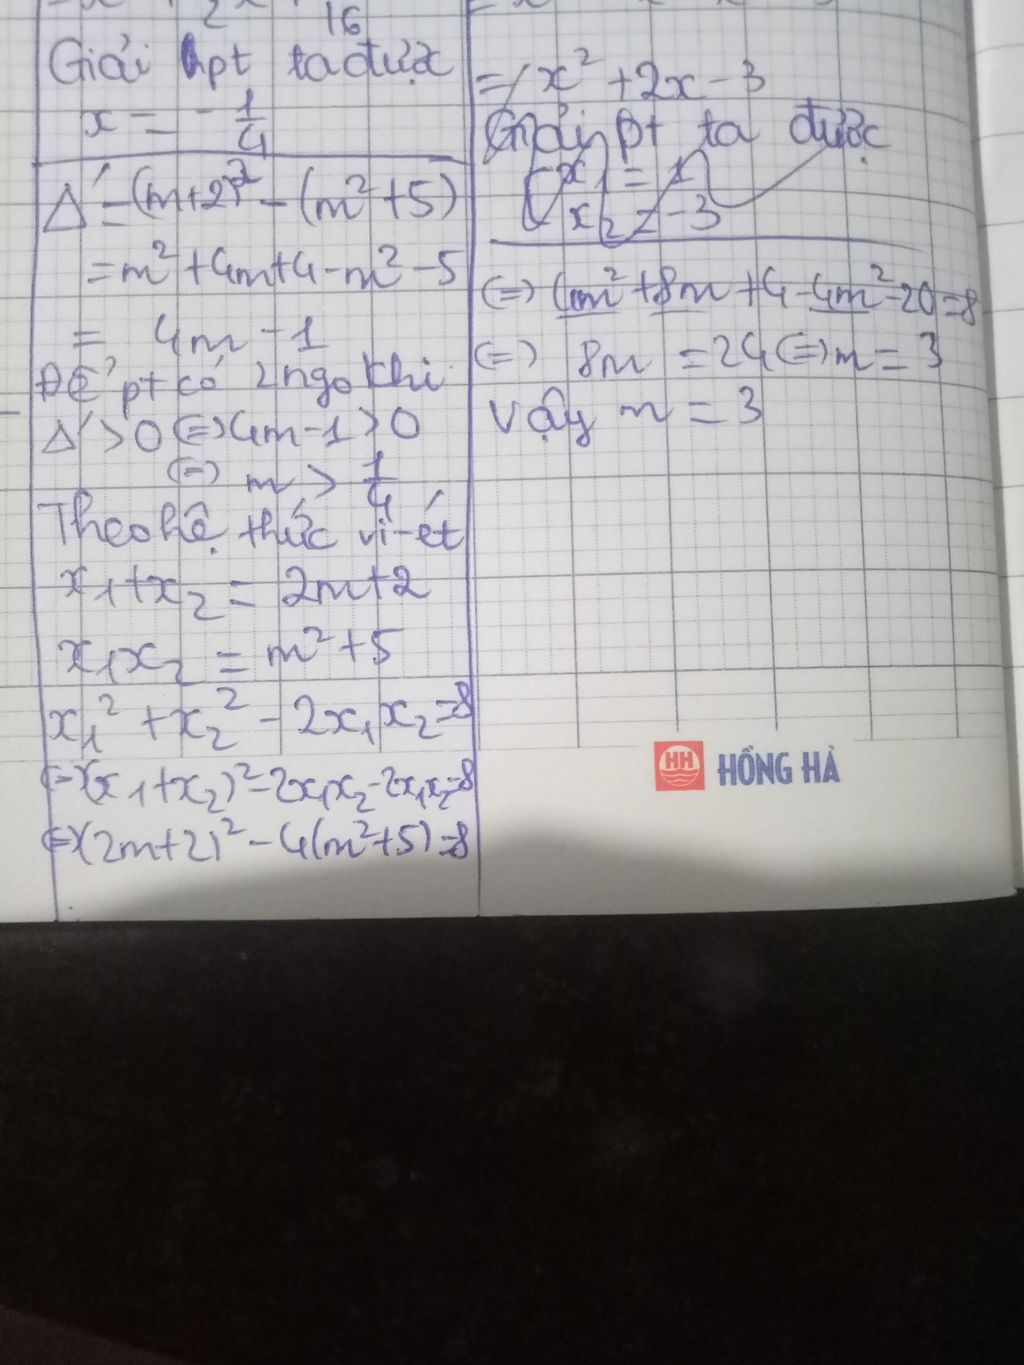 2 16
Giải hpt ta được
x = - 1/4
Δ' = (m+2)² - (m²+5)
= m² + 4m + 4 - m² - 5
= 4m - 1
Để pt có 2 ngo khi
Δ' > 0 (=) 4m - 1 > 0
(=) m > 1/4
Theo hệ thức vi-ét
x₁ + x₂ = 2m + 2
x₁x₂ = m² + 5
x₁² + x₂² - 2x₁x₂ = 8
(=)(x₁ + x₂)² - 2x₁x₂ - 2x₁x₂ = 8
(=)(2m+2)² - 4(m²+5) = 8
=/ x² + 2x - 3
Giải pt ta được
x₁ = 1
x₂ = -3
(=) 4m² + 8m + 4 - 4m² - 20 = 8
(=) 8m = 24 (=) m = 3
Vậy m = 3
HH HỒNG HÀ